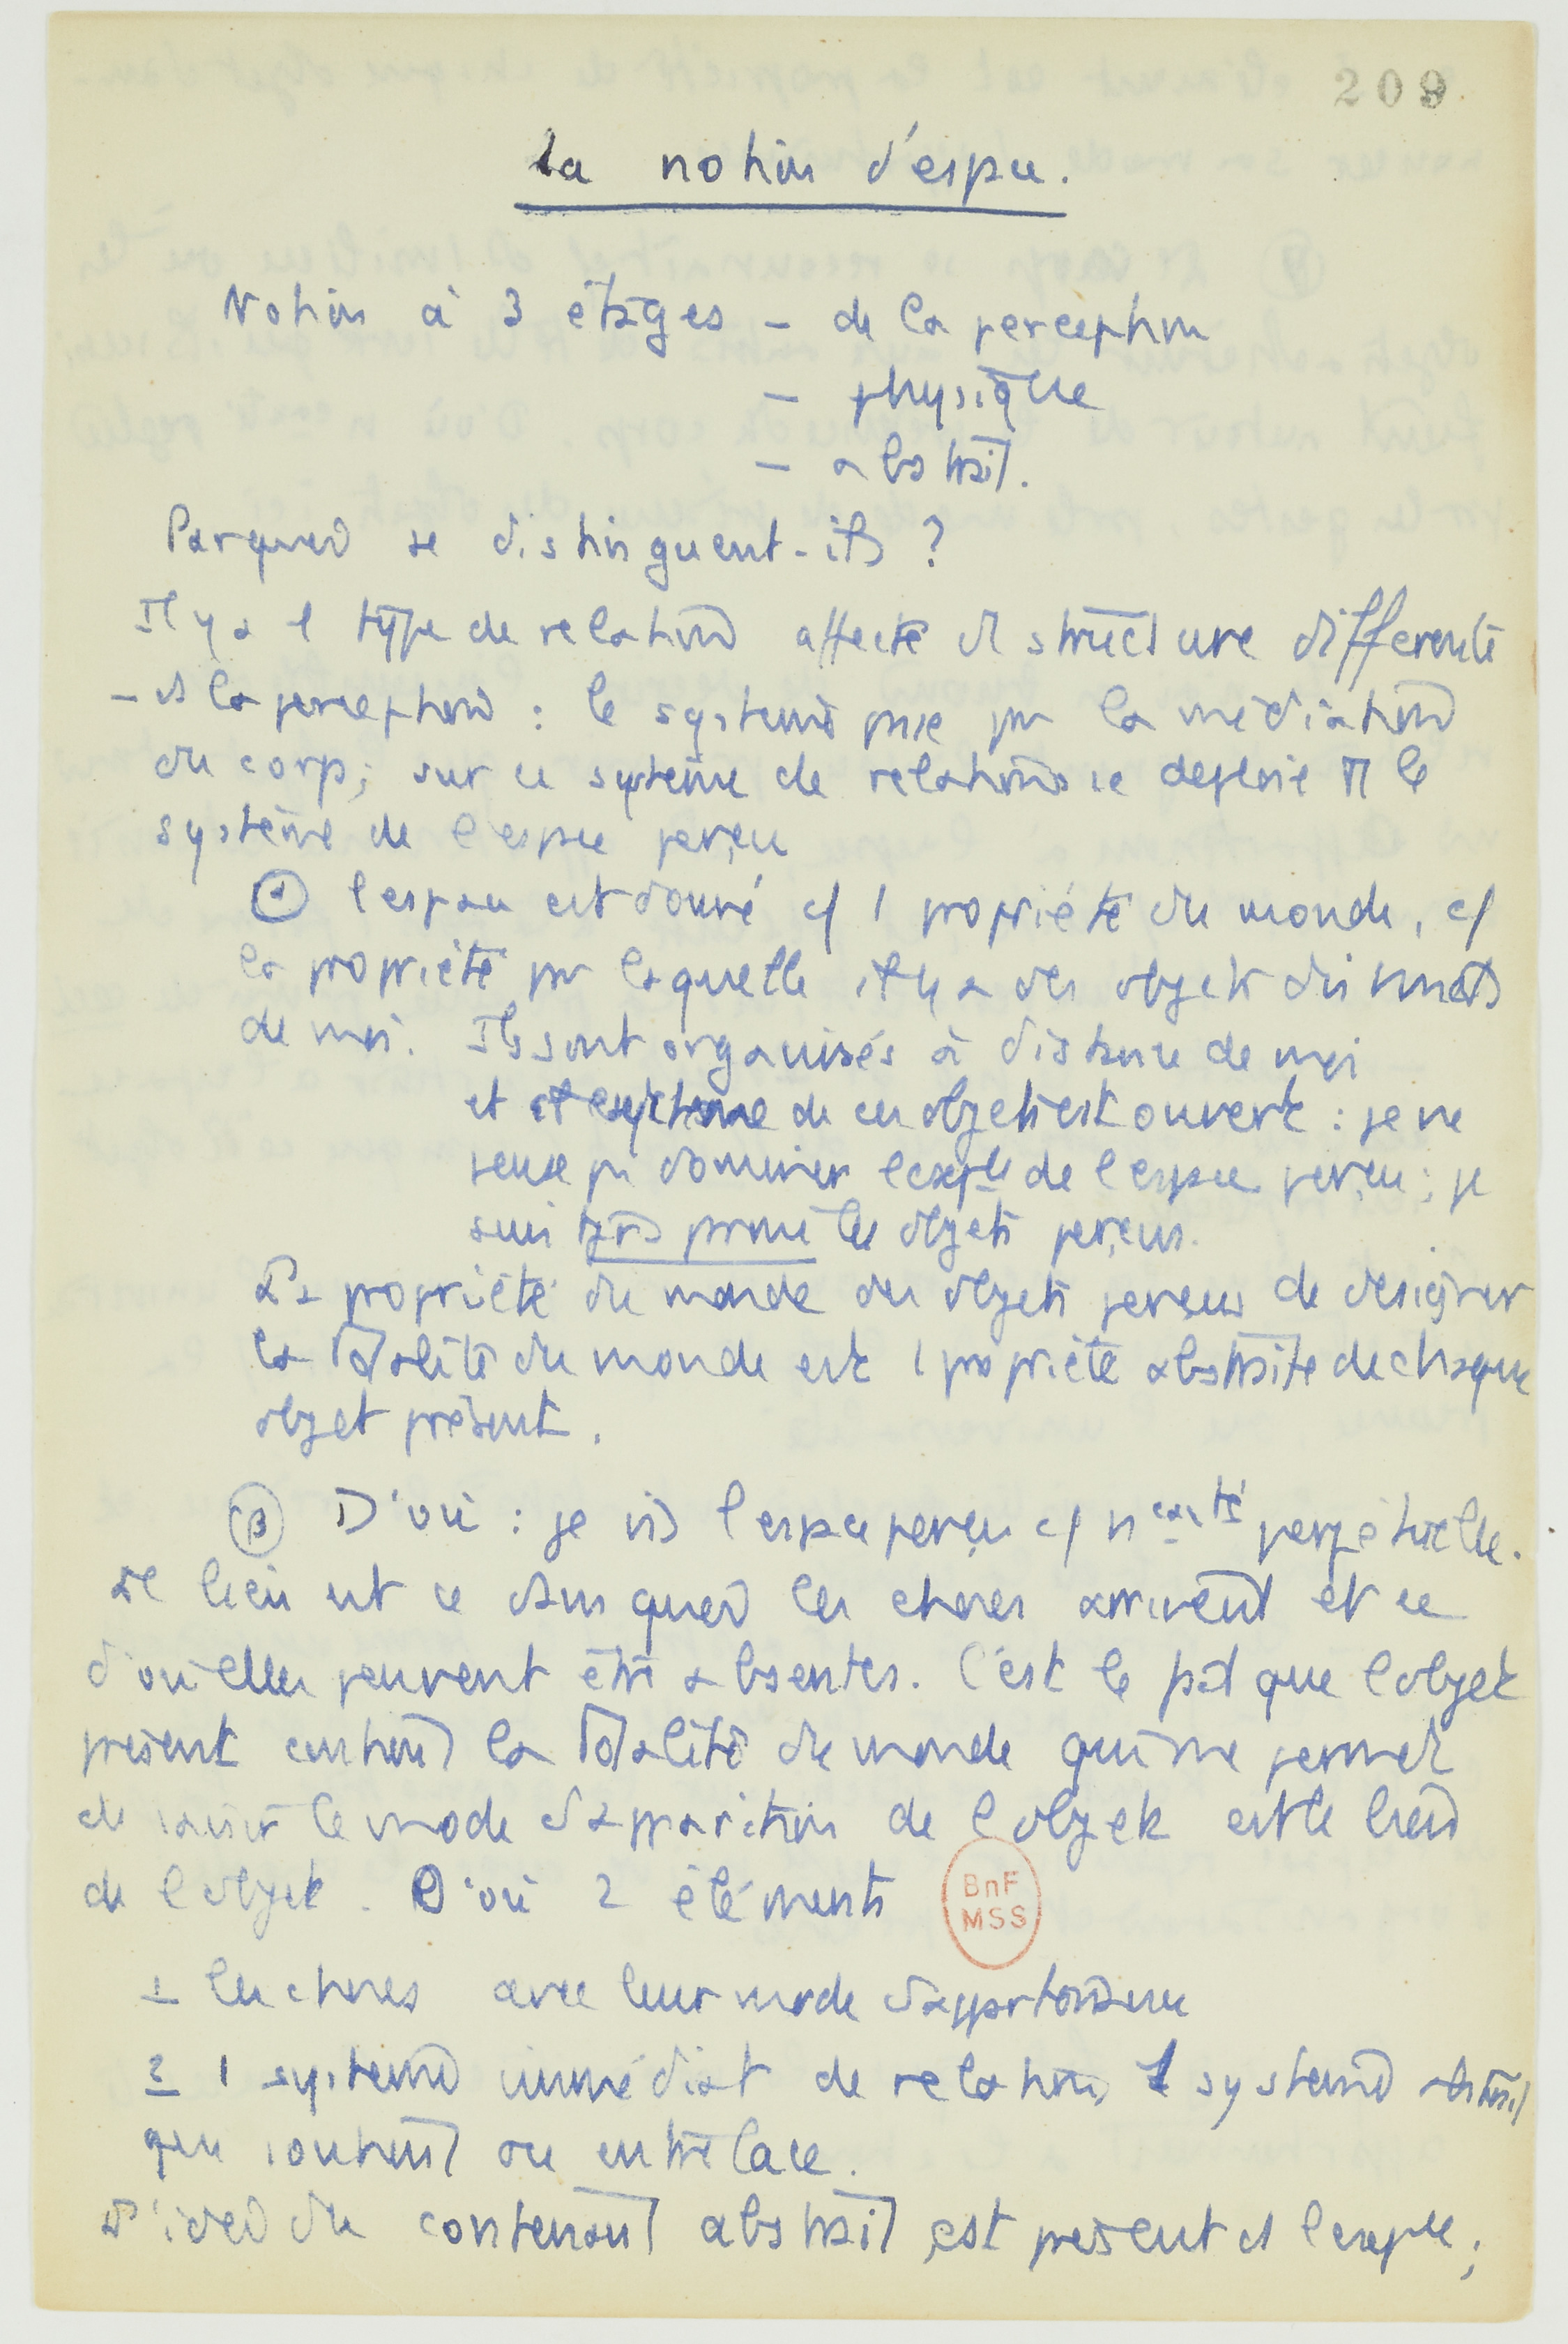 209
La notion d'espace.
Notion à 3 étages – de la perception
– physique
– abstrait.
Par quoi se distinguent-ils ?
Il y a 1 type de relation affecté de structure différente
– ds la perception : le système passe par la médiation
du corps; sur ce système de relations se déploie le
système de l'espace perçu
① l'espace est donné c/ 1 propriété du monde, c/
la propriété par laquelle il y a des objets distincts
de moi. Ils sont organisés à distance de moi
et système de ces objets est ouvert : je ne
peux pas dominer de l'espace perçu ; je
suis tjrs parmi les objets perçus.
La propriété du monde des objets perçus de désigner
la totalité du monde est 1 propriété abstraite de chaque
objet présent.
Ⓑ D'où : je vis l'espace perçu c/ perpétuelle.
Le lieu est ce dans quoi les choses arrivent et ce
d'où elles peuvent être absentes. C'est le fait que l'objet
présent contient la totalité du monde qui me permet
de saisir le mode d'apparition de l'objet est le lieu
de l'objet. D'où 2 éléments
BnF
MSS
1 les choses avec leur mode d'appartenance
2 1 système immédiat de relations 1 système abstrait
qui contient ou entrelace.
L'idée du contenant abstrait est présent ds ;